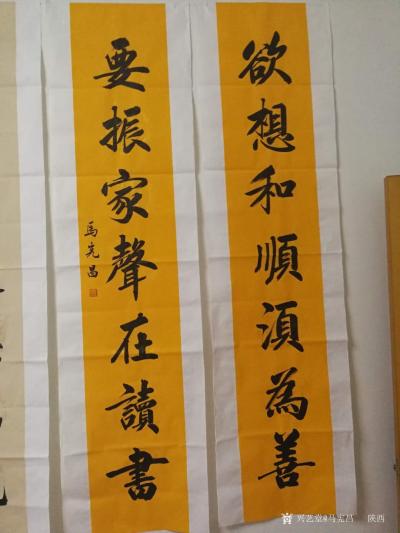 欲想和順須為善
要振家聲在讀書
馬克昌
兴艺堂@马克昌 陕西